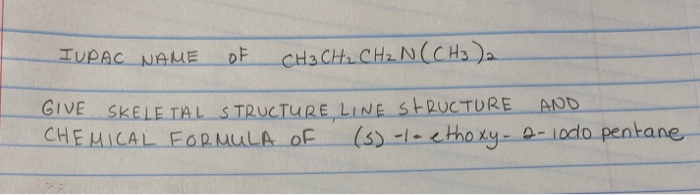 IUPAC NAME OF CH3CH2CH2N(CH3)2
GIVE SKELETAL STRUCTURE, LINE STRUCTURE AND
CHEMICAL FORMULA OF (S)-1-ethoxy-2-iodo pentane